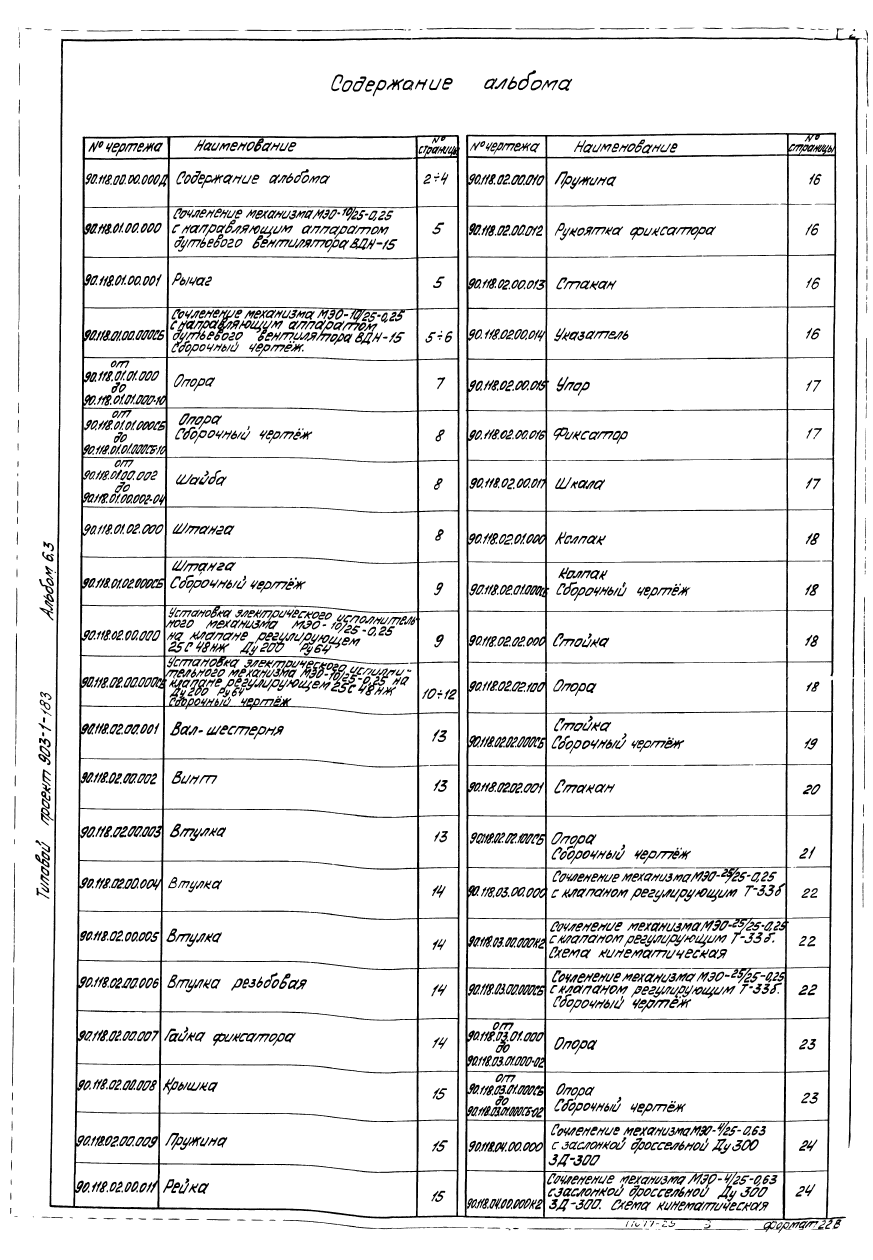 Содержание альбома
№ чертежа Наименование № страницы
90.118.00.00.000Д Содержание альбома 2÷4
Сочленение механизма МЭО-10/25-0,25
90.118.01.00.000 с направляющим аппаратом 5
дутьевого вентилятора ВДН-15
90.118.01.00.001 Рычаг 5
Сочленение механизма МЭО-10/25-0,25
с направляющим аппаратом
90.118.01.00.000СБ дутьевого вентилятора ВДН-15 5÷6
Сборочный чертёж.
от
90.118.01.01.000 Опора 7
до
90.118.01.01.000-10
от
90.118.01.01.000СБ Опора
до Сборочный чертёж 8
90.118.01.01.000СБ-10
от
90.118.01.00.002 Шайба 8
до
90.118.01.00.002-04
90.118.01.02.000 Штанга 8
Штанга
90.118.01.02.000СБ Сборочный чертёж 9
Установка электрического исполнитель-
ного механизма МЭО-10/25-0,25
90.118.02.00.000 на клапане регулирующем 9
25С 48нж Ду 200 Ру64
Установка электрического исполни-
тельного механизма МЭО-10/25-0,25 на
90.118.02.00.000СБ клапане регулирующем 25С 48нж 10÷12
Ду200 Ру64
Сборочный чертёж
90.118.02.00.001 Вал-шестерня 13
90.118.02.00.002 Винт 13
90.118.02.00.003 Втулка 13
90.118.02.00.004 Втулка 14
90.118.02.00.005 Втулка 14
90.118.02.00.006 Втулка резьбовая 14
90.118.02.00.007 Гайка фиксатора 14
90.118.02.00.008 Крышка 15
90.118.02.00.009 Пружина 15
90.118.02.00.011 Рейка 15
№ чертежа Наименование № страницы
90.118.02.00.010 Пружина 16
90.118.02.00.012 Рукоятка фиксатора 16
90.118.02.00.013 Стакан 16
90.118.02.00.014 Указатель 16
90.118.02.00.015 Упор 17
90.118.02.00.016 Фиксатор 17
90.118.02.00.017 Шкала 17
90.118.02.01.000 Колпак 18
Колпак
90.118.02.01.000СБ Сборочный чертёж 18
90.118.02.02.000 Стойка 18
90.118.02.02.100 Опора 18
Стойка
90.118.02.02.000СБ Сборочный чертёж 19
90.118.02.02.001 Стакан 20
90.118.02.02.100СБ Опора
Сборочный чертёж 21
Сочленение механизма МЭО-25/25-0,25
90.118.03.00.000 с клапаном регулирующим Т-33б 22
Сочленение механизма МЭО-25/25-0,25
90.118.03.00.000К2 с клапаном регулирующим Т-33б. 22
Схема кинематическая
Сочленение механизма МЭО-25/25-0,25
90.118.03.00.000СБ с клапаном регулирующим Т-33б. 22
Сборочный чертёж
от
90.118.03.01.000
до Опора 23
90.118.03.01.000-02
от
90.118.03.01.000СБ Опора
до Сборочный чертёж 23
90.118.03.01.000СБ-02
Сочленение механизма МЭО-4/25-0,63
90.118.04.00.000 с заслонкой дроссельной Ду 300 24
ЗД-300
Сочленение механизма МЭО-4/25-0,63
с заслонкой дроссельной Ду 300 24
90.118.04.00.000К2 ЗД-300. Схема кинематическая
Типовой проект 903-1-183 Альбом 6.3
3 формат 22В